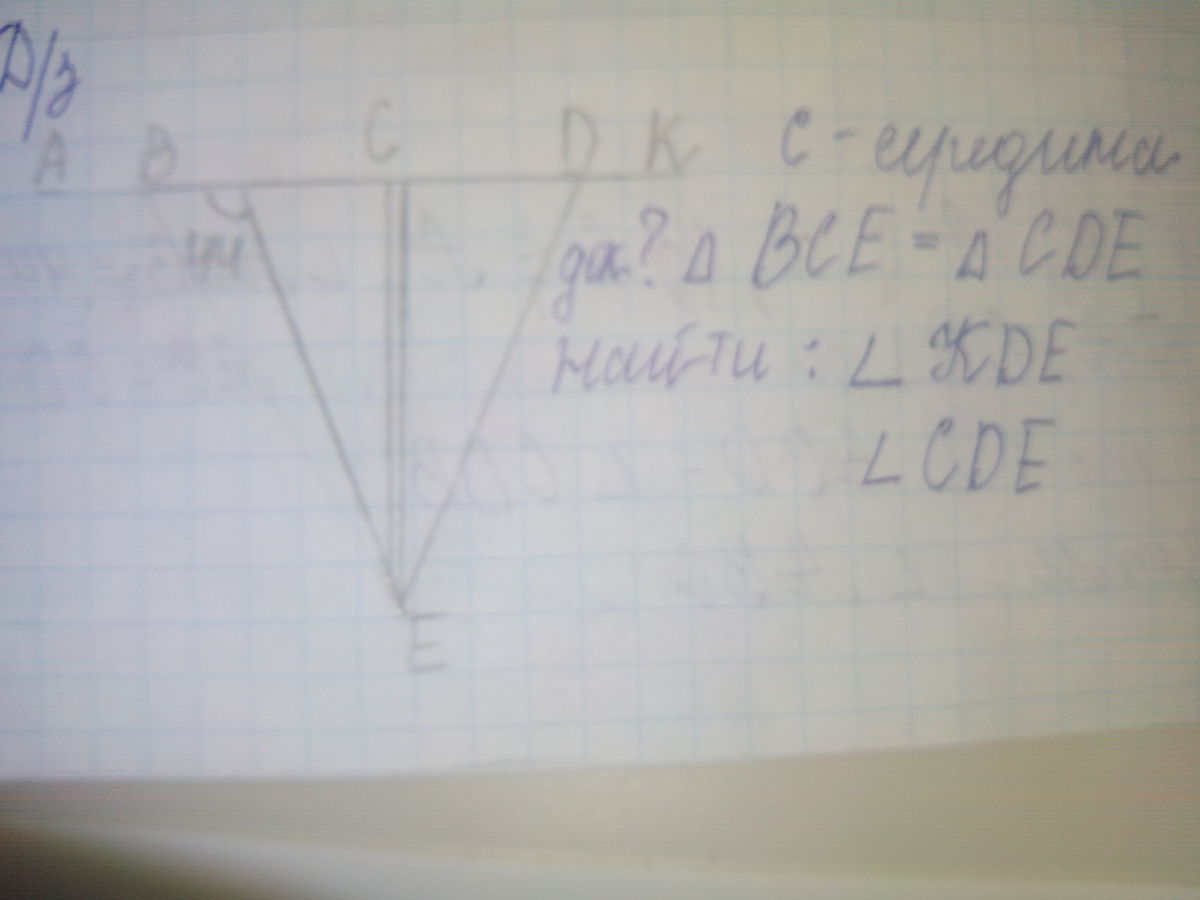 Д/з
A B C D K
C - середина
да? △ BCE = △ CDE
Найти : ∠ KDE
∠ CDE
E